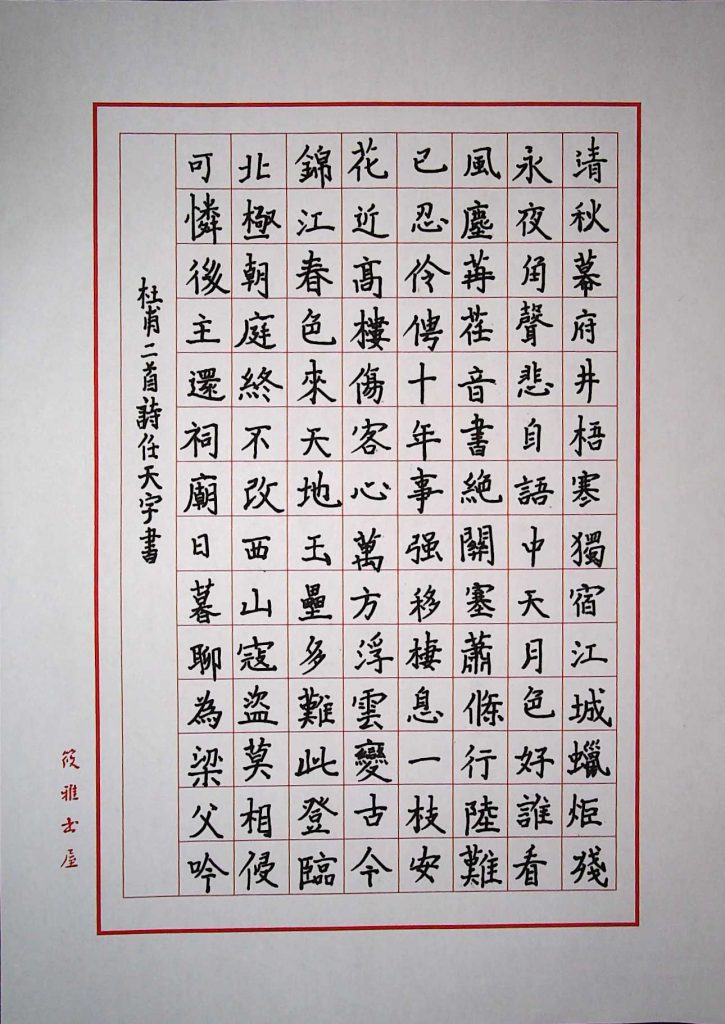 清秋幕府井梧寒獨宿江城蠟炬殘
永夜角聲悲自語中天月色好誰看
風塵苒荏音書絶關塞蕭條行陸難
已忍伶俜十年事强移棲息一枝安
花近高樓傷客心萬方浮雲變古今
錦江春色來天地玉壘多難此登臨
北極朝庭終不改西山寇盜莫相侵
可憐後主還祠廟日暮聊為梁父吟
杜甫二首詩任天字書
筱雅书屋